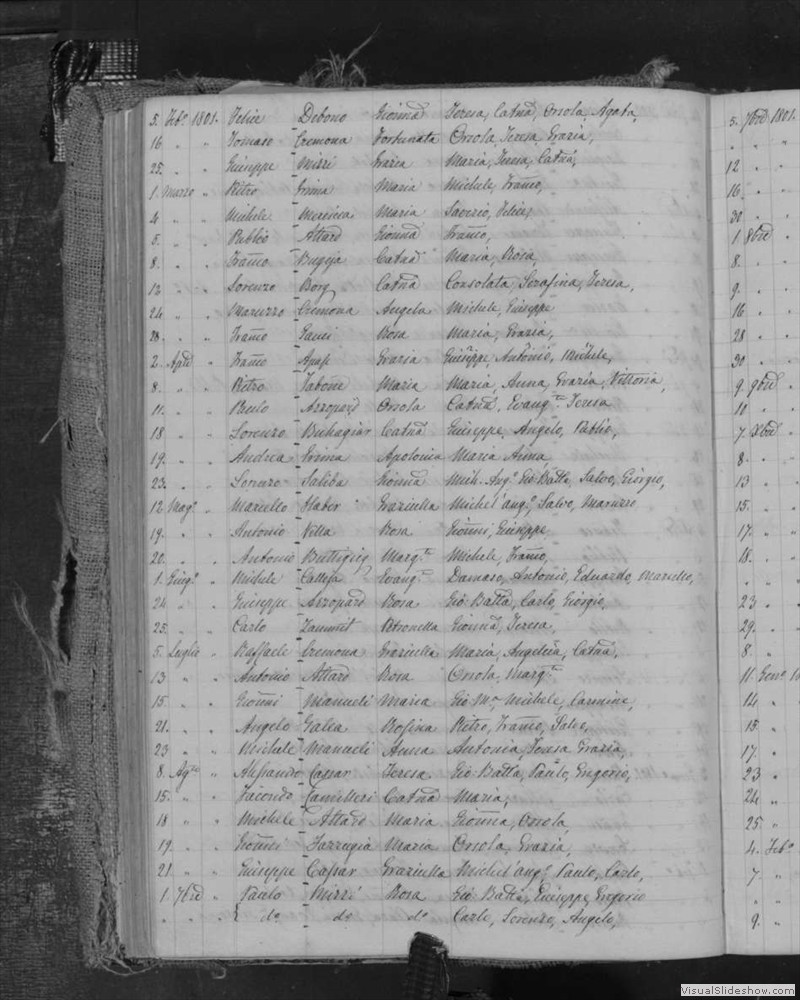 5. Feb.º 1801. Felice Debono Gionna Teresa, Catnã, Orsola, Agata,
16 " " Tomaso Cremona Fortunata Orsola, Teresa, Grazia,
25. " " Giuseppe Mizzi Grazia Maria, Teresa, Catnã,
1. Marzo " Pietro Grima Maria Michele, Franco,
4 " " Michele Maria Saverio, Felice,
5. " " Publio Attard Gionna Franco,
8. " " Franco Bugeja Catnã Maria, Rosa,
12 " " Lorenzo Borg Catnã Consolata, Serafina, Teresa,
24 " " Maruzzo Cremona Angela Michele, Giuseppe
28. " " Franco Gauci Rosa Maria, Grazia,
2. Aple " Franco Apap Grazia Giuseppe, Antonio, Michele,
8. " " Pietro Tabone Maria Maria, Anna, Grazia, Vittoria,
11. " " Paulo Azzopard Orsola Catnã, Evangª Teresa
18 " " Lorenzo Buhagiar Catnã Giuseppe, Angelo, Publio,
19. " " Andrea Grima Apolonia Maria Anna
23. " " Lorenzo Saliba Gionna Mich. Angº Gio Batta, Salvo, Giorgio,
12 Magº " Marcello Haber Graziella Michel'angº, Salvo, Maruzzo
19. " " Antonio Villa Rosa Gionni, Giuseppe
20. " " Antonio Buttigieg Margta Michele, Franco,
1. Giugº " Michele Calleja Evangª Damaso, Antonio, Eduardo, Marcello,
24 " " Giuseppe Azzopard Rosa Gio Batta, Carlo, Giorgio,
25. " " Carlo Zammit Petronella Gionna, Teresa
5. Luglio " Raffaele Cremona Graziella Maria, Angelica, Catnã,
13 " " Antonio Attard Rosa Orsola, Margta
15. " " Gionni Manueli Maria Gio Mª, Michele, Carmine,
21. " " Angelo Galea Rosina Pietro, Franco, Salvo,
23 " " Michele Manueli Anna Antonia, Teresa, Grazia,
8. Agto " Alessandro Cassar Teresa Gio Batta, Paulo, Gregorio,
15. " " Facondo Camilleri Catnã Maria,
18 " " Michele Attard Maria Gionna, Orsola,
19. " " Gionni Farrugia Maria Orsola, Grazia,
21 " " Giuseppe Cassar Graziella Michel'angº, Paulo, Carlo,
1. 7bre " Paulo Mizzi Rosa Gio Batta, Giuseppe, Gregorio
" " { do do do Carlo, Lorenzo, Angelo,
5. 7bre 1801.
" " "
12 " "
16. " "
30 " "
1 8bre "
8. " "
9. " "
16 " "
28 " "
30 " "
9. 9bre "
10 " "
7. Xbre "
8. " "
13 " "
15. " "
17. " "
18. " "
" "
23 "
29. "
8. "
11. Genº
14 "
15. "
17. "
23 "
24 "
25. "
4. Febº
7 "
9. "
VisualSlideshow.com